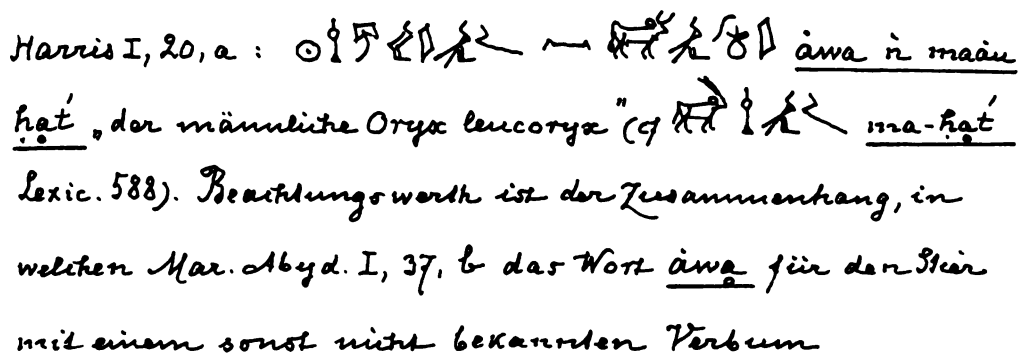 Harris I, 20, a : áwa ṅ maáu
ḥaṭ́ „der männliche Oryx leucoryx" (cf ma-ḥaṭ́
Lexic. 588). Beachtungswerth ist der Zusammenhang, in
welchen Mar. Abyd. I, 37, b das Wort áwa̭ für den Stier
mit einem sonst nicht bekannten Verbum